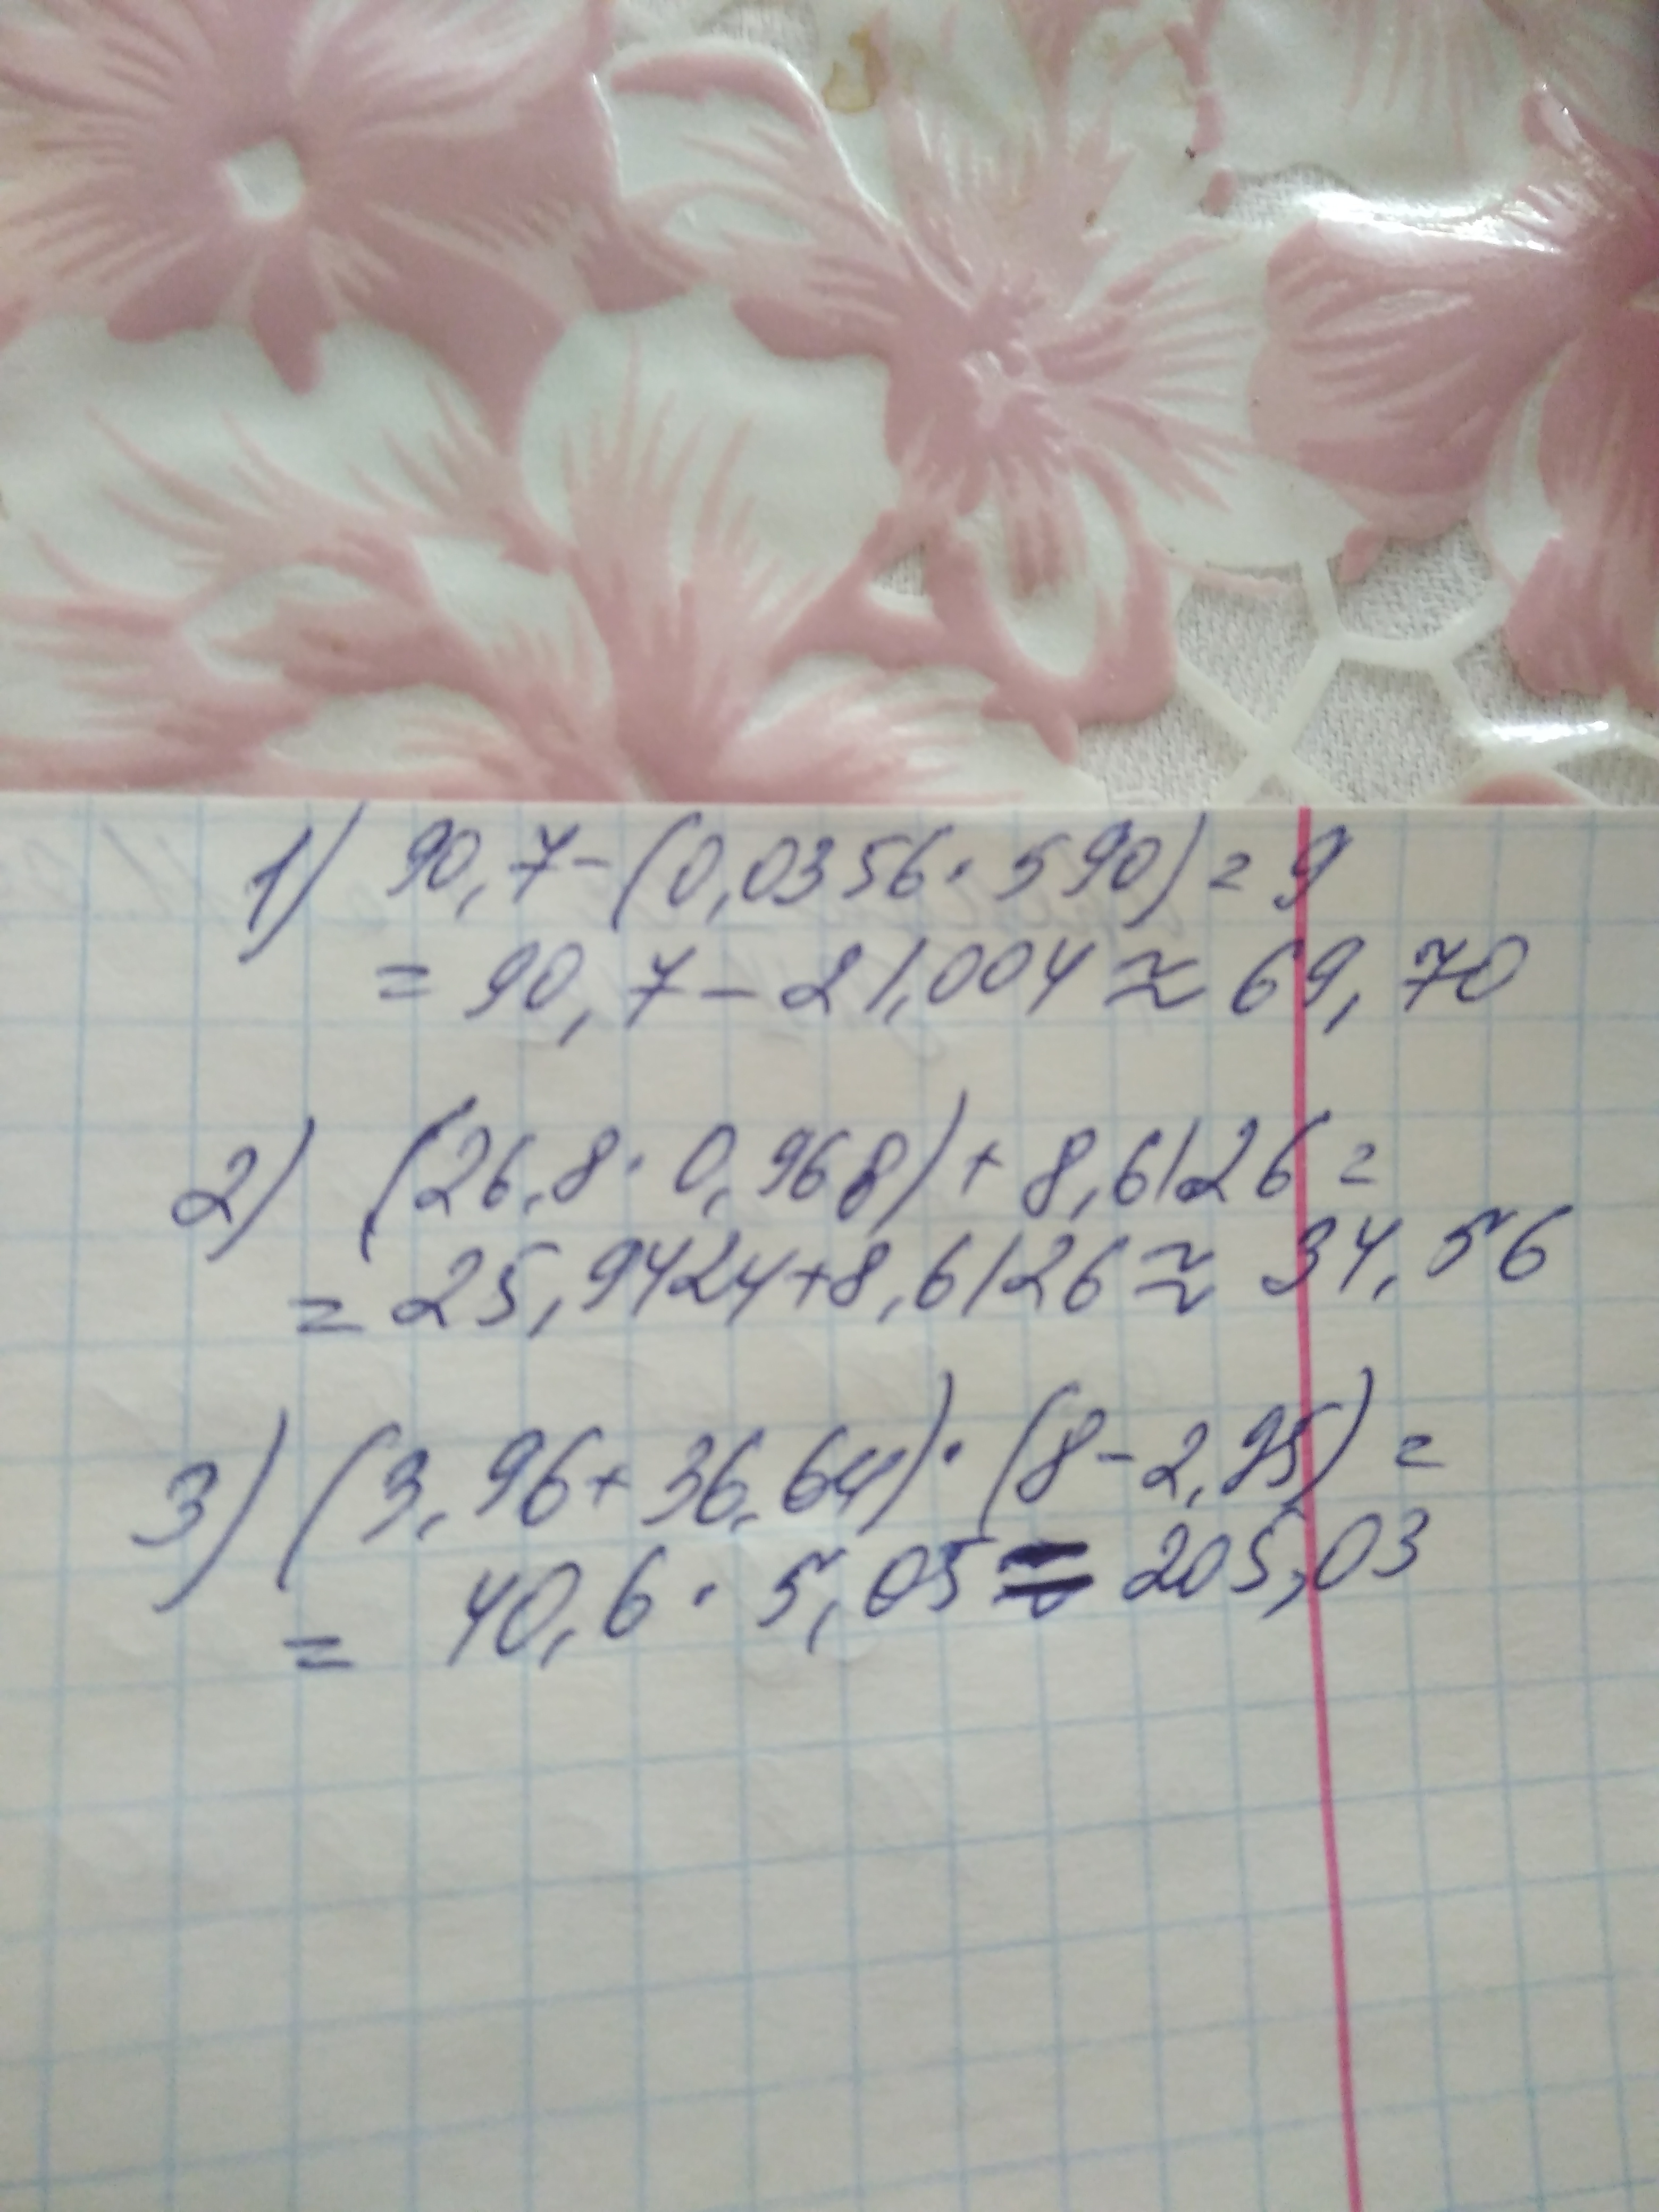 1) 90,7-(0,0356·590)=9
= 90,7-21,004≈69,70
2) (26,8·0,968)+8,6126=
=25,9424+8,6126≈34,56
3) (3,96+36,64)·(8-2,95)=
= 40,6·5,05=205,03